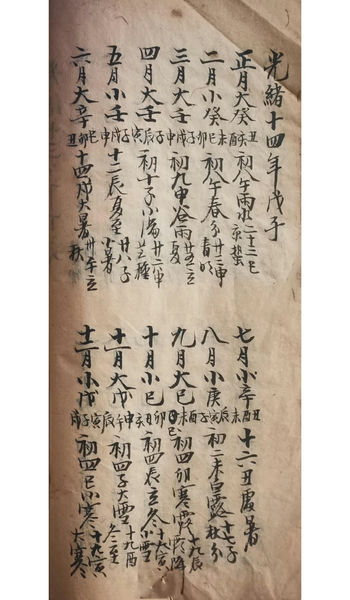 光緒十四年戊子
正月大癸丑亥酉初八午雨水二十三巳京蟄
二月小癸未巳卯初八午春分廿三申青明
三月大壬子戌申初九申谷雨廿五立夏
四月大壬午辰寅初十子小滿廿二申芒種
五月小壬子戌申十二辰夏至廿八子小暑
六月大辛巳卯丑十四戌大暑廿午立秋
七月小辛丑酉未十六丑處暑
八月小庚辰寅子初二未白露十七子秋分
九月大己酉未巳初四卯寒露十九辰霜降
十月小己卯丑亥初四辰立冬十九寅小雪
十一月大戊申午辰初四子大雪十九酉冬至
十二月小戊寅子戌初四巳小寒十九寅大寒